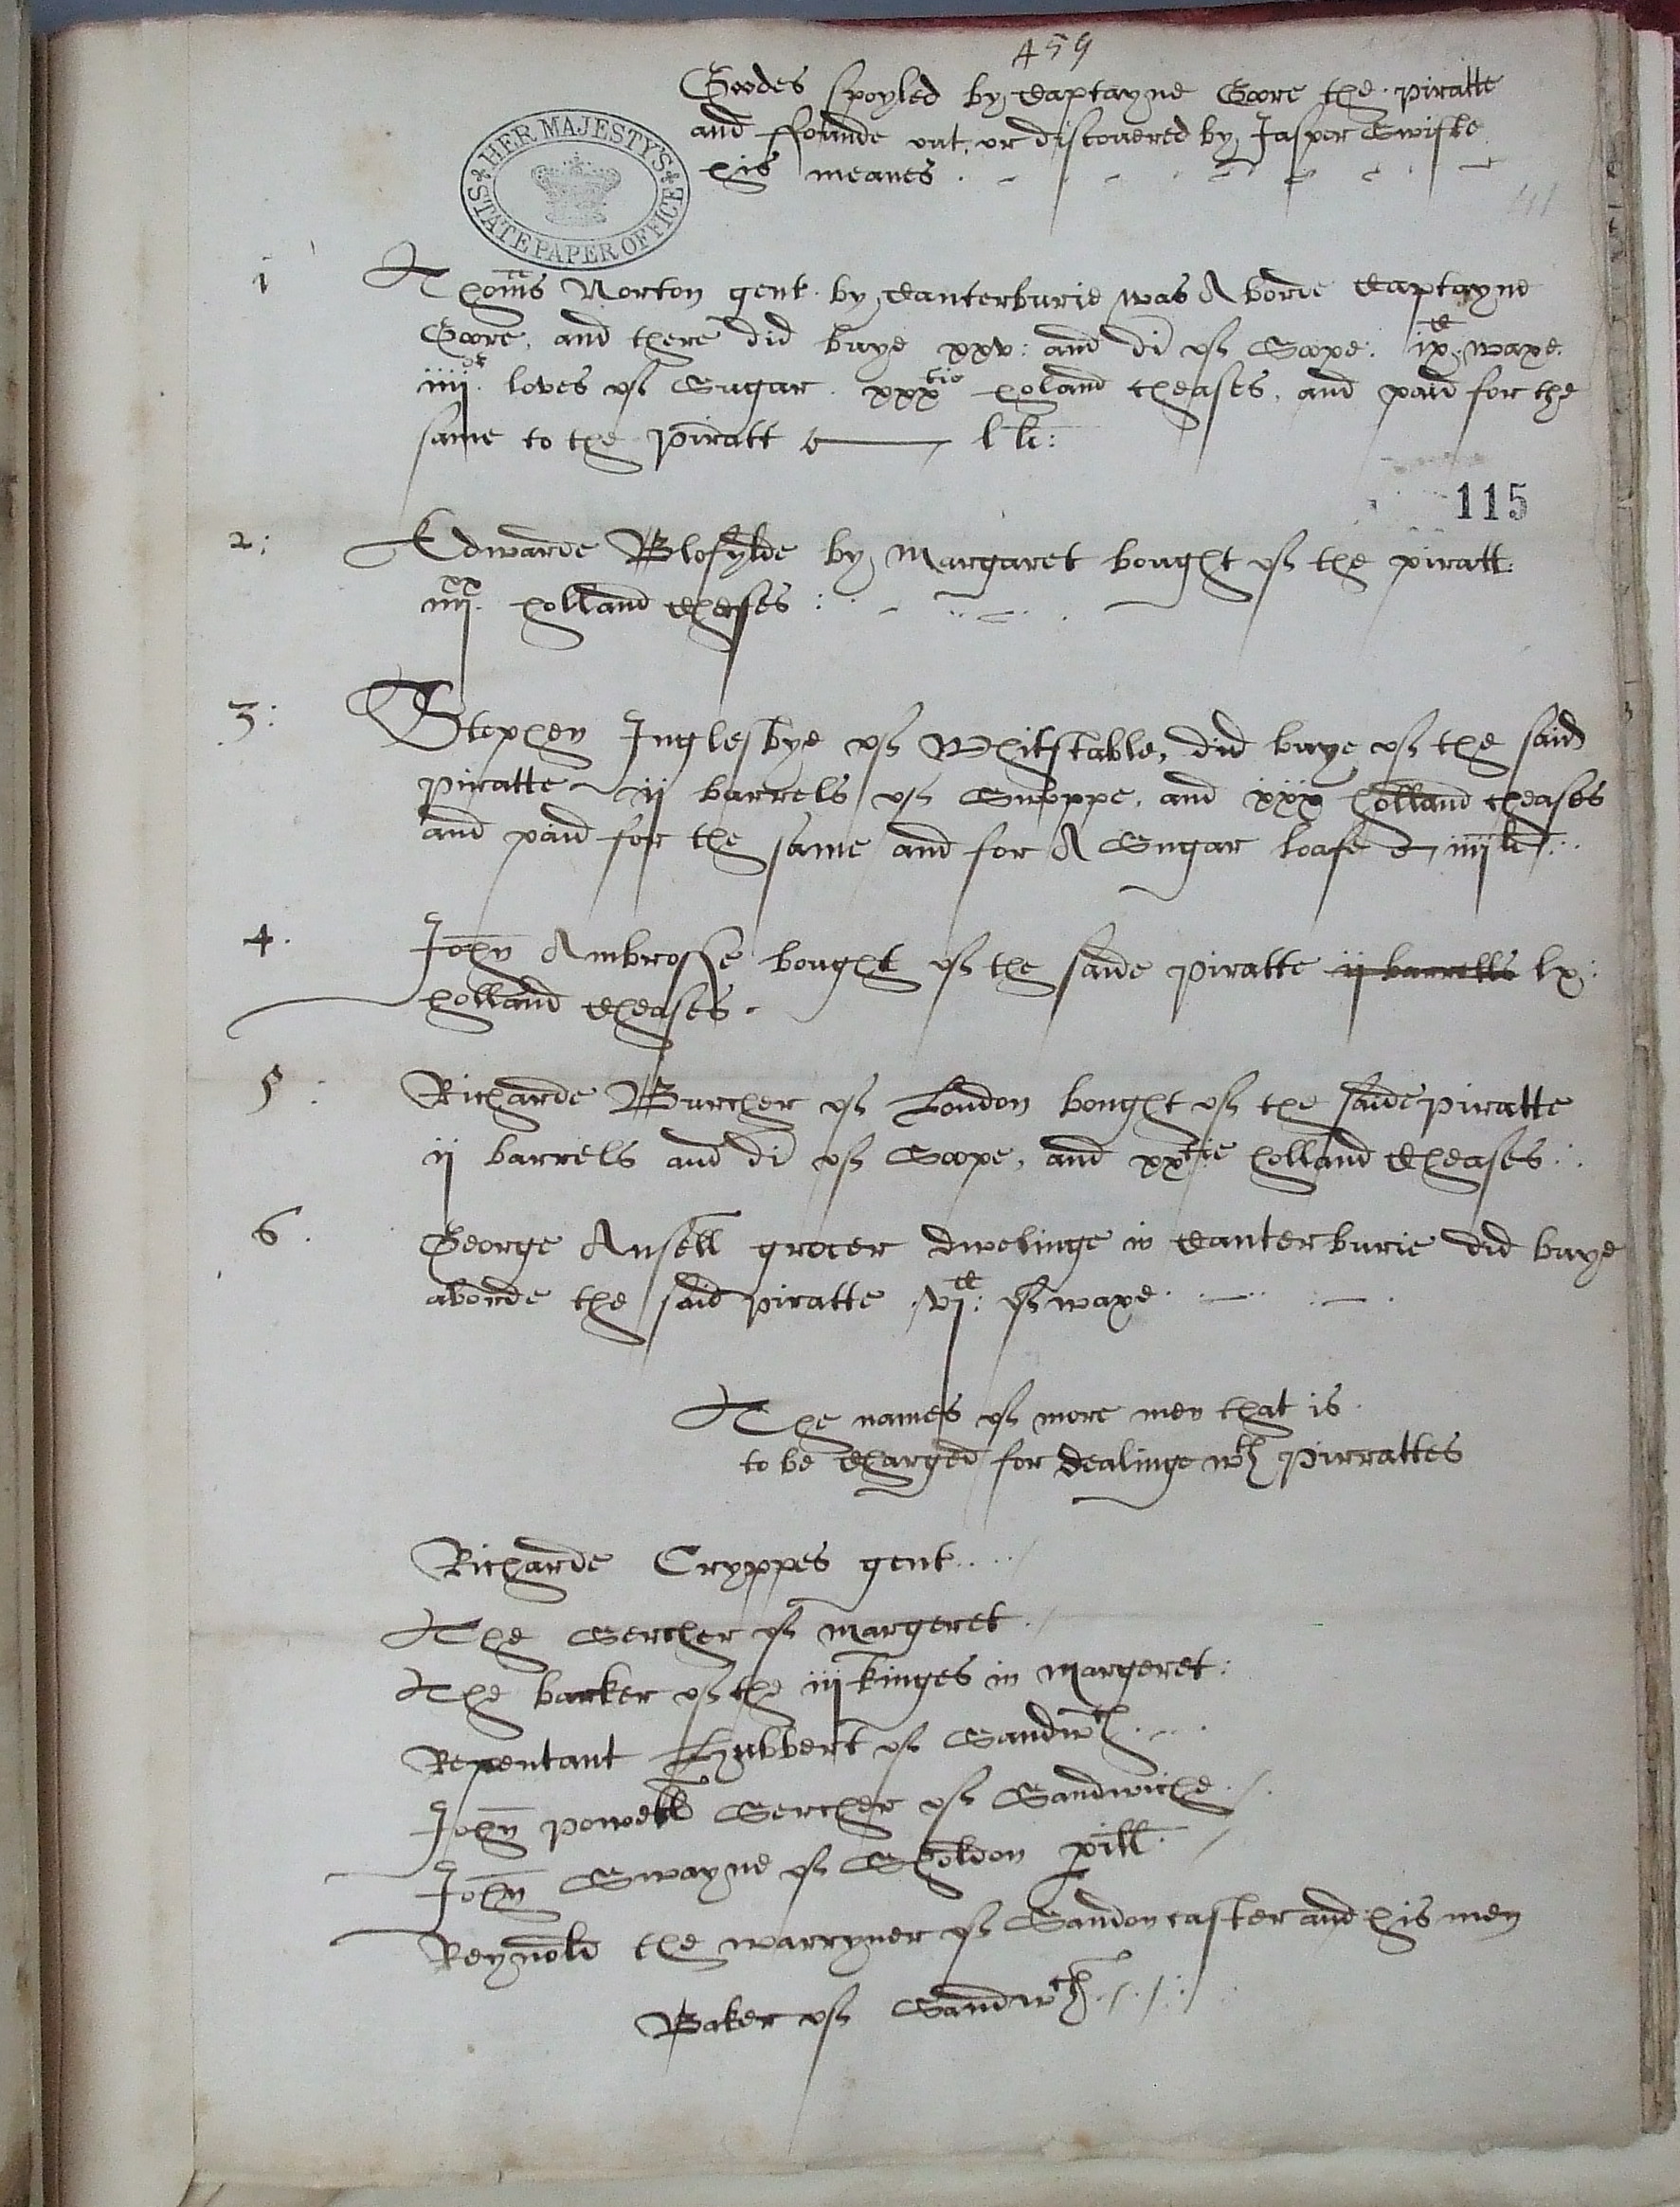 459
Goodes spoyled by Captayne Goore the piratte
and ffounde out, or discouered by Jasper Swifte
his meanes
HER MAJESTY'S STATE PAPER OFFICE
1 Thoms Norton gent by Canterburie was A borde Captayne
Goore, and there did buye xxv: and di of Soope. ixC waxe.
iiijor loves of Sugar. xxxtie holand cheases, and paid for the
same to the Piratt l li:
115
2: Edwarde Blofylde by Margaret bought of the piratt
iiijxx holland cheases:
3: Stephen Inglesbye of Whitstable, did buye of the said
Piratte ij barrels of Swoppe, and xxx holland cheases
and paid for the same and for A Sugar loafe iiij li
4. John Ambrosse bought of the saide Piratte ij barrells lx:
holland cheases.
5. Richarde Burcher of London bought of the saide piratte
ij barrels and di of Soope, and xxtie holland cheases:
6. George Ansell grocer dwelinge in Canterburie did buye
aborde the said piratte vjC: of waxe.
The names of more men that is
to be charged for dealinge wth Pirrattes
Richarde Cryppes gent
The Sercher of Margeret
The barker of the iij kinges in Margeret:
Repentant Hubbert of Sandwch
John Powell Sercher of Sandwiche
John Swayne of Sholdon pill
Reynold the warryner of Sandon caster and his men
Baker of Sandwch